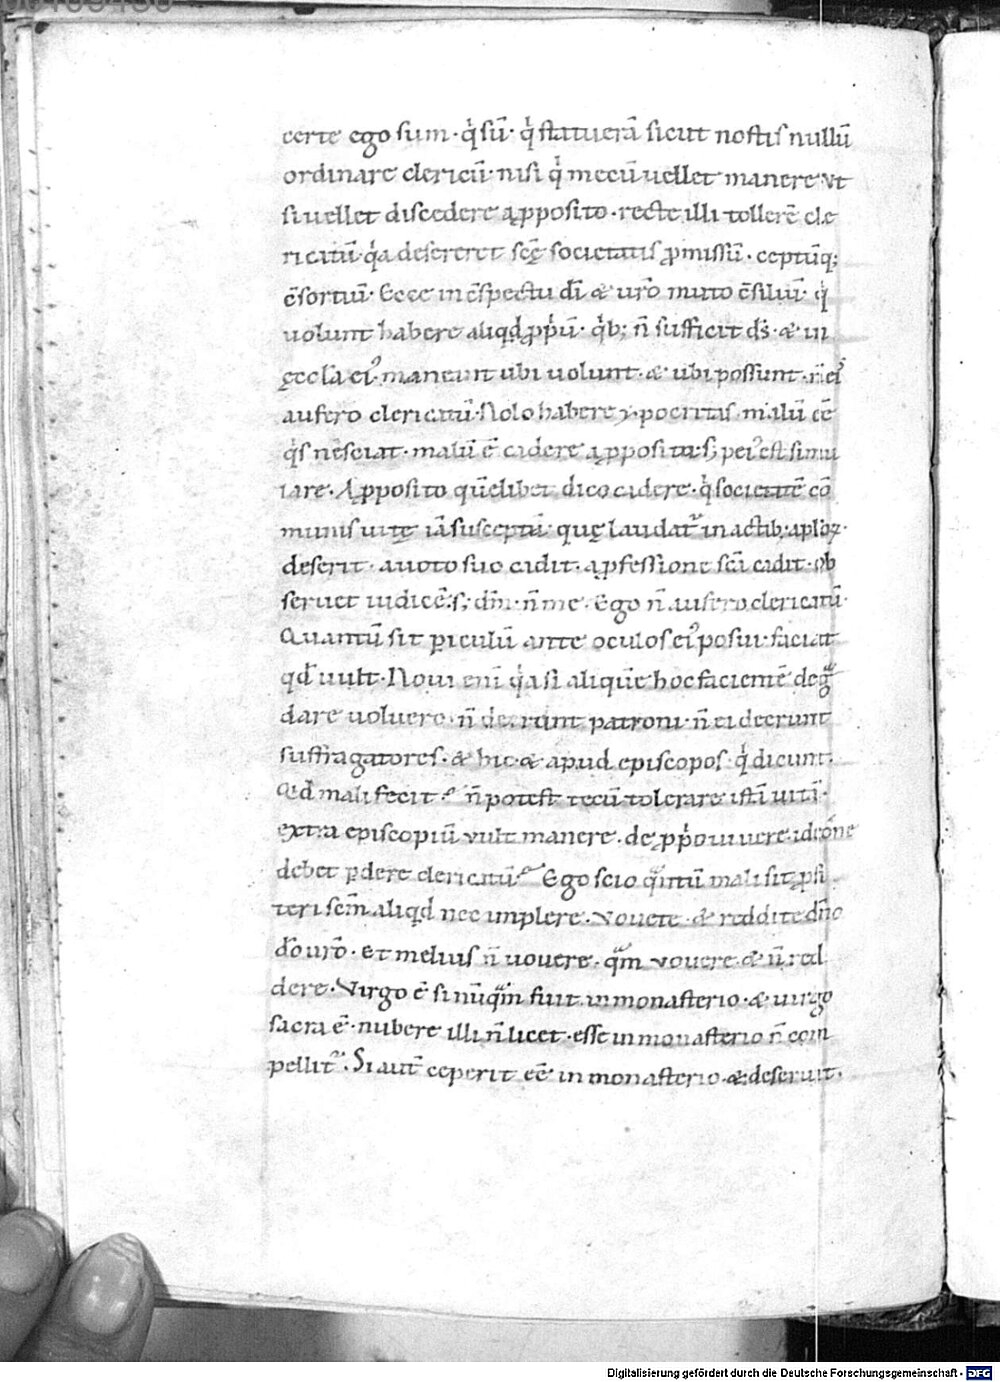 certe ego sum · q̇ sū · q̇ statuerā sicut nostis nullū
ordinare clericū · nisi q̇ mecū uellet manere · vt
si uellet discedere a ꝓposito · recte illi tollerē cle
ricatū · q̇a desereret scę̄ societatis ꝓmissū · ceptūq;
c̄sortiū · Ecce in c̄spectu dī & ur̄o muto c̄siliū · q̇
uolunt habere aliqd̄ ꝓṗū · q̇b; n̄ sufficit ds̄ · & in
ęccla ei᾽ · maneant ubi uolunt · & ubi possunt · n̄ eis
aufero clericatū · Nolo habere ypocritas · malū ee̅
q̇s nesciat · malū ē cadere a ꝓposito · s; pei᾽ est simu
lare · A ꝓposito quēlibet dico cadere · q̇ societatē cō
munis uitę iā susceptā · quę laudat᷑ in actib; aplōꝝ ·
deserit · a uoto suo cadit · a ꝓfessione scā cadit · ob
seruet iudicē · s; dm̄ · n̄ me · Ego n̄ aufero clericatū ·
Quantū sit ꝑiculū ante oculos ei᾽ posui · faciat
qd̄ uult · Noui eni᷑ q̇a si aliquē hoc facientē degͣ
dare uoluero · n̄ deerunt patroni · n̄ ei deerunt
suffragatores · & hic & apud episcopos q̇ dicunt ·
Qd̄ mali fecit? n̄ potest tecū tolerare istā uitā ·
extra episcopiū vult manere · de ꝓṗo uiuere · ideone
debet ꝑdere clericatū? Ego scio qͣntū mali sit ꝓfi
teri scm̄ aliqd̄ nec implere · Vouete · & reddite dn̄o
dō ur̄o · Et melius n̄ uouere · qͣm vouere & n̄ red
dere · Virgo ē si nūqͣm fuit in monasterio · & uirgo
sacra ē · nubere illi n̄ licet · esse in monasterio n̄ com
pellit᷑ · Si aut̄ ceperit ee̅ in monasterio · & deseruit ·
Digitalisierung gefördert durch die Deutsche Forschungsgemeinschaft - DFG